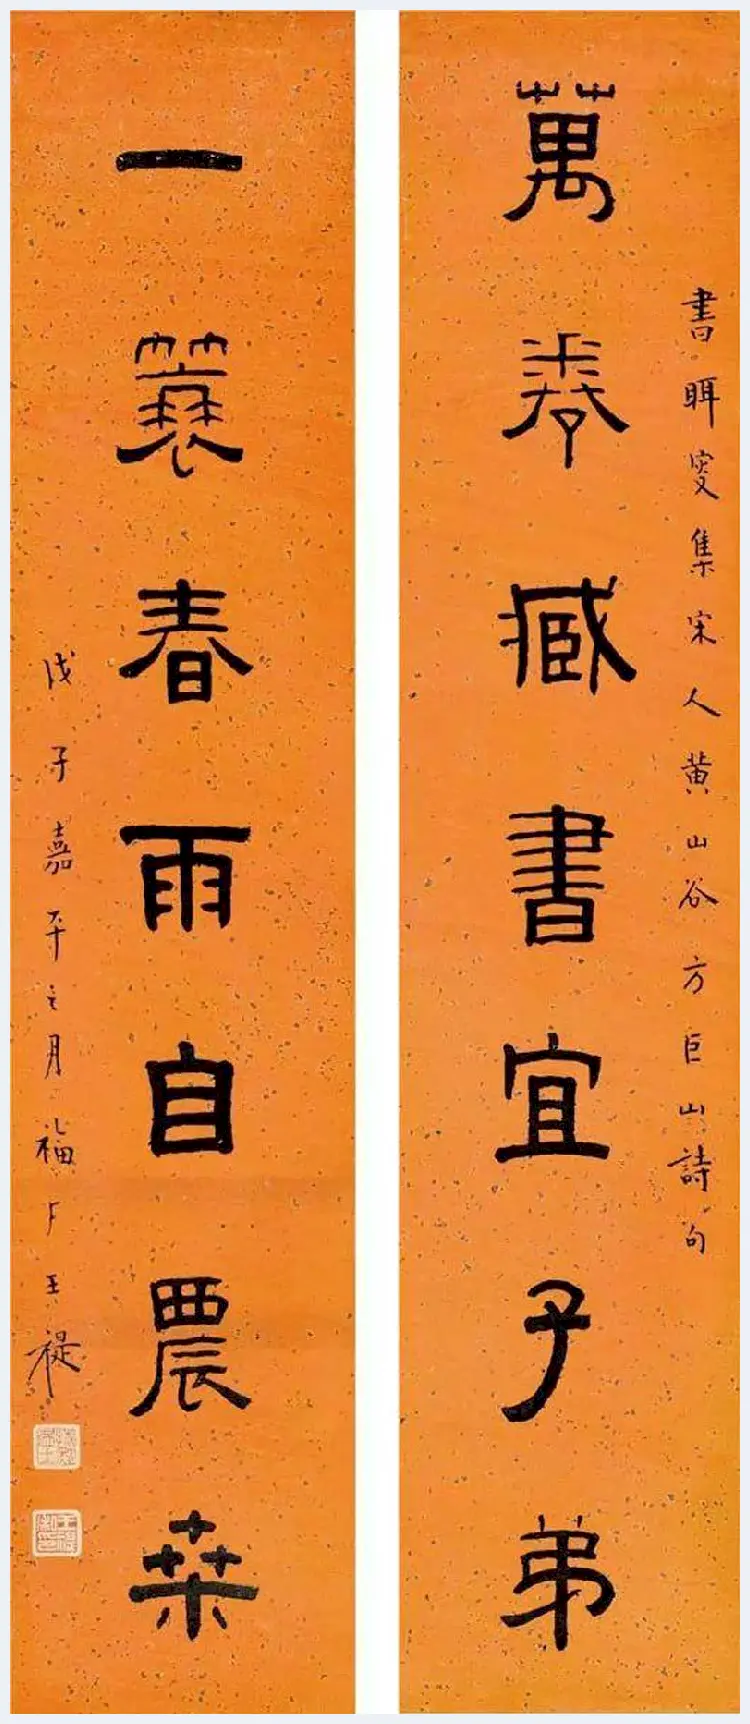 書眲叜集宋人黃山谷方巨山詩句
萬卷臧書宜子弟
一簑春雨自農桒
戊子嘉平之月福厂王禔